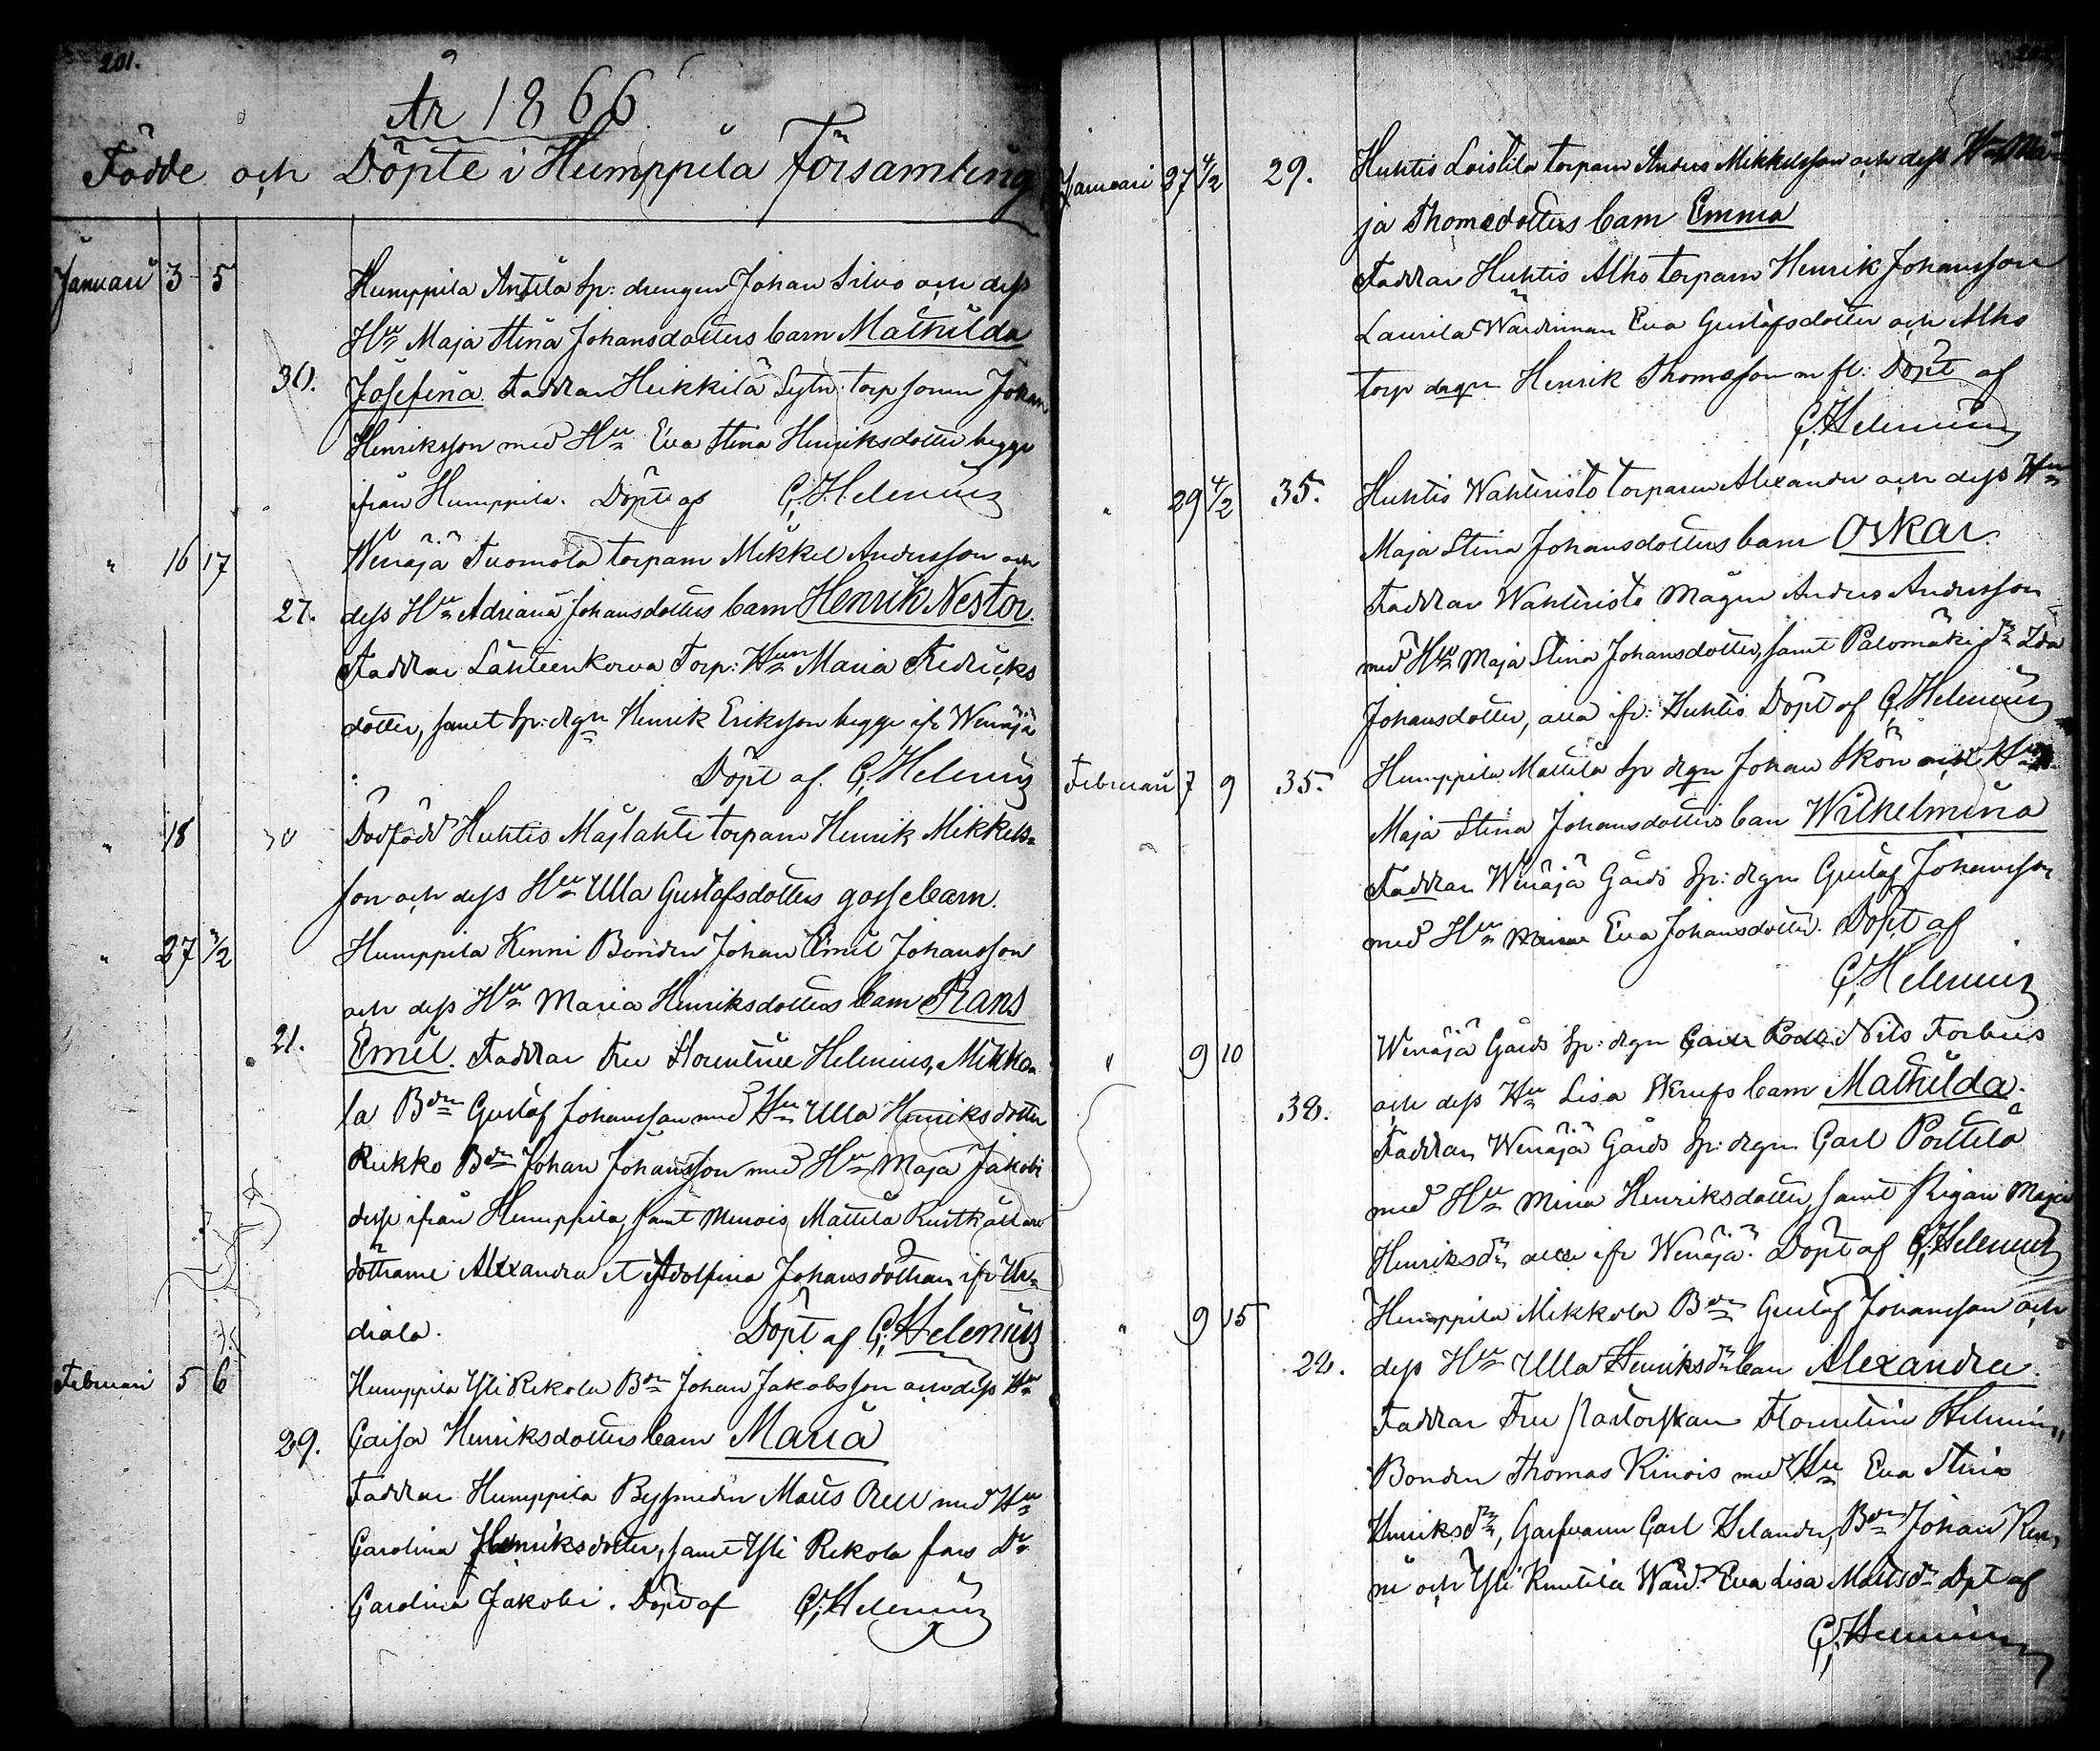 201.
År 1866
Födde och Döpte i Humppila Församling
Januari 3 5
Humppila Anttila Sp: drengen Johan Silvo och dess
Hu Maja Stina Johansdotters barn Mathilda
30. Josefina. Faddrar Heikkilä Sytn: torp sonen Johan
Henriksson med Hu Eva Stina Henriksdotter begge
ifrån Humppila. Döpt af C, Helenius
" 16 17
Wenäjä Tuomola torparn Mikkel Andersson och
27. dess Hu Adriana Johansdotters barn Henrik Nestor.
Faddrar Lähteenkorva Torp: Hun Maria Fredricks
dotter, samt Sp: drgn Henrik Eriksson begge ifr Wenäjä
Döpt af. C, Helenius
" 18
Dödfödd Huhtis Majlahti torparn Henrik Mikkels-
son och dess Hu Ulla Gustafsdotters gossebarn.
" 27 /2
Humppila Kenni Bonden Johan Emil Johansson
och dess Hu Maria Henriksdotters barn Frans
21. Emil. Faddrar Fru Florentine Helenius, Mikko-
la Bdn Gustaf Johansson med Hu Ulla Henriksdotter
Rukko Bdn Johan Johansson med Hu Maja Jakobi
desse ifrån Humppila, samt Menois Mattila Rusthållare
döttrarne Alexandra et Adolfina Johansdöttrar ifr Ur-
diala. Döpt af C, Helenius
Februari 5 6
Humppila Yli Rekola Bdn Johan Jakobsson och dess Hu
29. Caisa Henriksdotters barn Maria
Faddrar Humppila Byssmeden Mats Orell med Hu
Carolina Henriksdotter, samt Yli Rekola fars Dr
Carolina Jakobi. Döpt af C, Helenius
Januari 27 4/2
29. Huhtis Loistila torparn Anders Mikkelsson och dess Hu Ma-
ja Thomedotters barn Emma
Faddrar Huhtis Alho torparn Henrik Johansson
Laurila Wärdinnan Eva Gustafsdotter och Alho
torp drgn Henrik Thomasson m fl: Döpt af
C, Helenius
" 29 4/2
35. Huhtis Wahteristo torparen Alexander och dess Hu
Maja Stina Johansdotters barn Oskar.
Faddrar Wahteristo Mågen Anders Andersson
med Hu Maja Stina Johansdotter, samt Palomäki Dr Ida
Johansdotter, alla ifr: Huhtis Döpt af C, Helenius
Februari 7 9
35. Humppila Mattila Sp drgn Johan Skön och Hu
Maja Stina Johansdotters barn Wilhelmina
Faddrar Wenäjä Gårds Sp: drgn Gustaf Johansson
med Hu Eva Johansdotter. Döpt af
C, Helenius
" 9 10
Wenäjä Gårds Sp: drgn Nils Forbus
38. och dess Hu Lisa Skrufs barn Mathilda.
Faddrar Wenäjä Gårds Sp: drgn Carl Porttila
med Hu Mina Henriksdotter, samt Pigan Maja
Henriksdr alla ifr Wenäjä. Döpt af C, Helenius
" 9 15
Humppila Mikkola Bdn Gustaf Johansson och
22. dess Hu Ulla Henriksdr barn Alexandra.
Faddrar Fru Pastorskan Florentine Helenius,
Bonden Thomas Kinois med Hu Eva Stina
Henriksdr, Garfvarn Carl Helander, Bdn Johan Ken-
ni och Yli Knutila Wärd: Eva Lisa Mattsdr Dpt af
C, Helenius